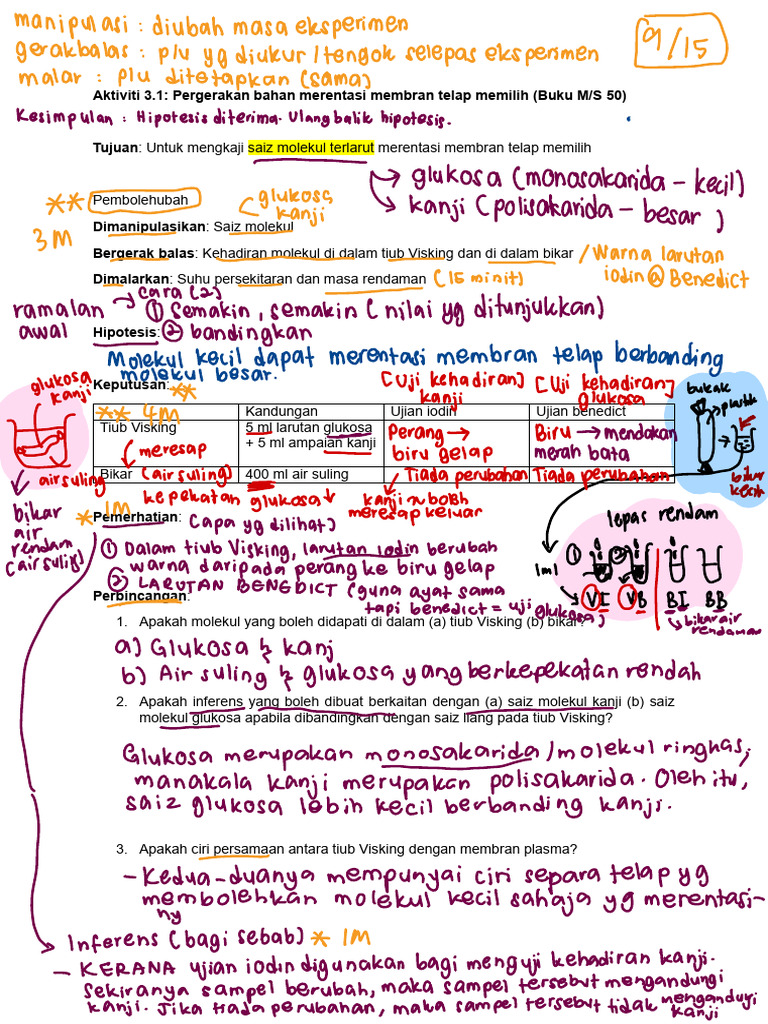 manipulasi : diubah masa eksperimen
gerakbalas : p/u yg diukur/tengok selepas eksperimen
malar : p/u ditetapkan (sama)
9/15
Aktiviti 3.1: Pergerakan bahan merentasi membran telap memilih (Buku M/S 50)
Kesimpulan : Hipotesis diterima. Ulangbalik hipotesis.
Tujuan: Untuk mengkaji saiz molekul terlarut merentasi membran telap memilih
glukosa (monosakarida – kecil)
kanji (polisakarida – besar)
Pembolehubah
glukosa
kanji
3M
Dimanipulasikan: Saiz molekul
Bergerak balas: Kehadiran molekul di dalam tiub Visking dan di dalam bikar / Warna larutan
iodin @ Benedict
Dimalarkan: Suhu persekitaran dan masa rendaman (15 minit)
ramalan
awal
cara (2)
① Semakin, semakin (nilai yg ditunjukkan)
Hipotesis: ② bandingkan
Molekul kecil dapat merentasi membran telap berbanding
molekul besar.
Keputusan: **
[Uji kehadiran] kanji
[Uji kehadiran] glukosa
** 4M Kandungan Ujian iodin Ujian benedict
Tiub Visking 5 ml larutan glukosa + 5 ml ampaian kanji Perang → biru gelap Biru → mendakan merah bata
meresap
Bikar (air suling) 400 ml air suling Tiada perubahan Tiada perubahan
kepekatan glukosa ↓
kanji boleh
meresap keluar
glukosa
kanji
air suling
bikar
air
rendam
(air suling)
bukak
plastik
bikar
kecik
lepas rendam
1ml
① ②
VI VB BI BB
bikar air
rendaman
* 1M
Pemerhatian: (apa yg dilihat)
① Dalam tiub Visking, larutan iodin berubah
warna daripada perang ke biru gelap
② LARUTAN BENEDICT (guna ayat sama
tapi benedict = uji glukosa)
Perbincangan:
1. Apakah molekul yang boleh didapati di dalam (a) tiub Visking (b) bikar?
a) Glukosa & kanj
b) Air suling & glukosa yang berkepekatan rendah
2. Apakah inferens yang boleh dibuat berkaitan dengan (a) saiz molekul kanji (b) saiz
molekul glukosa apabila dibandingkan dengan saiz liang pada tiub Visking?
Glukosa merupakan monosakarida/molekul ringkas,
manakala kanji merupakan polisakarida. Oleh itu,
saiz glukosa lebih kecil berbanding kanji.
3. Apakah ciri persamaan antara tiub Visking dengan membran plasma?
- Kedua-duanya mempunyai ciri separa telap yg
membolehkan molekul kecil sahaja yg merentasi-
ny
Inferens (bagi sebab) * 1M
- KERANA ujian iodin digunakan bagi menguji kehadiran kanji.
Sekiranya sampel berubah, maka sampel tersebut mengandungi
kanji. Jika tiada perubahan, maka sampel tersebut tidak mengandungi
kanji